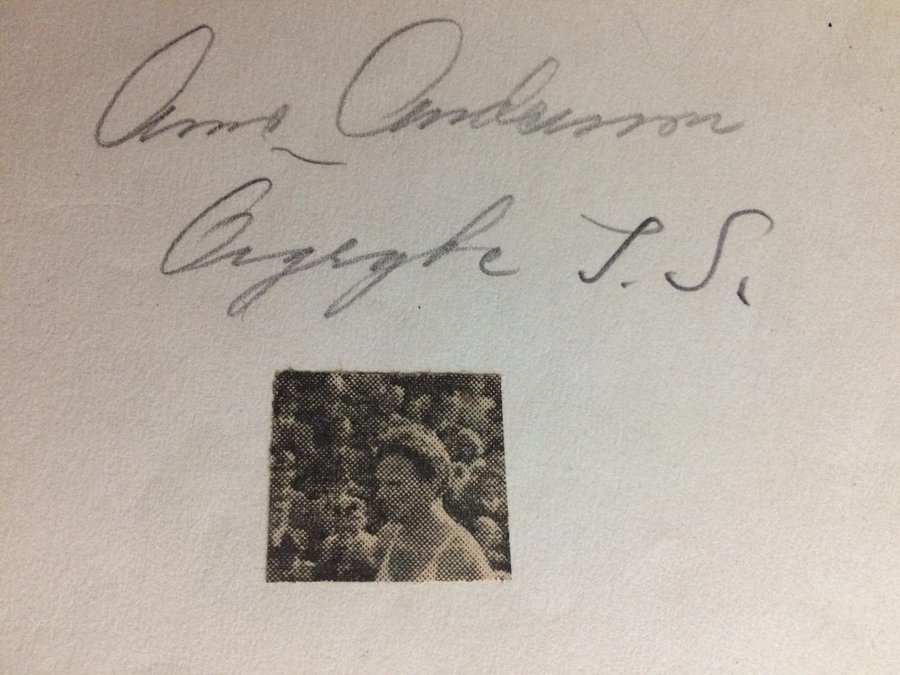 Arne Andersson
Orgryte I.S.